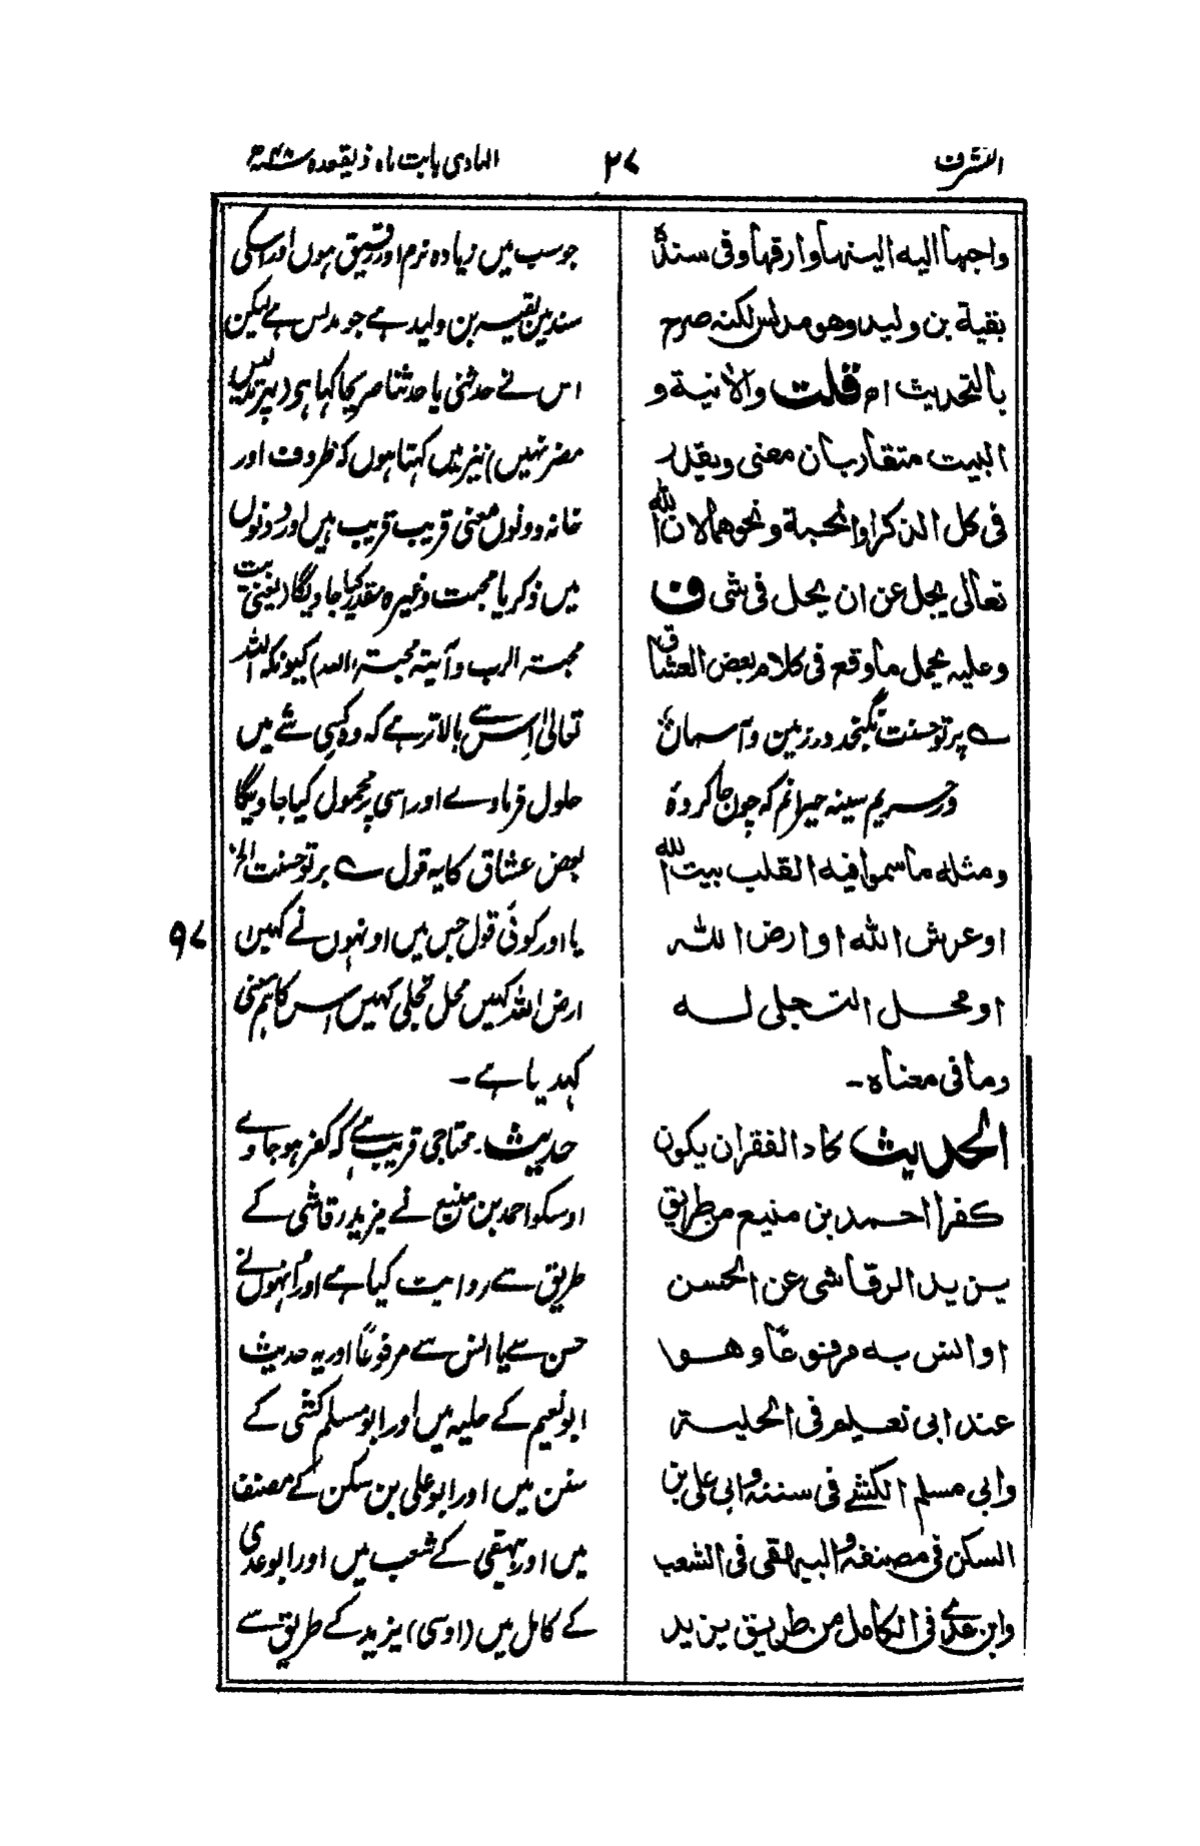 التشرف
۲۷
الہادی بابت ماہ ذیقعدہ ۱۳۴۸ھ
واحبہا الیہ الینہا وارقہا وفی سندہ
بقیة بن ولید وھو مدلس لکنہ صرح
بالتحدیث اھ قلت والاٰنیة و
البیت متقاربان معنی ویقدر
فی کل الذکر او المحبة ونحوھما لان اللہ
تعالٰی یجل عن ان یحل فی شیٔ ف
وعلیہ یحمل ما وقع فی کلام بعض العشاق
؎ پرتو حسنت نگنجد در زمین وآسمان
در حریم سینہ حیرانم کہ چون جا کردہٴ
ومثلہ ما سموا فیہ القلب بیت اللہ
او عرش اللہ او ارض اللہ
او محل التجلی لہ
وما فی معناہ۔
الحدیث کاد الفقر ان یکون
کفرا احمد بن منیع من طریق
یزید الرقاشی عن الحسن
او انس بہ مرفوعًا وھو
عند ابی نعیم فی الحلیة
وابی مسلم الکشی فی سننہ وابی علی بن
السکن فی مصنفہ والبیہقی فی الشعب
وابن عدی فی الکامل من طریق یزید
جو سب میں زیادہ نرم اور رقیق ہوں اور اسکی
سند میں بقیہ بن ولید ہے جو مدلس ہے لیکن
اس نے حدثنی یا حدثنا صریحًا کہا ہو (پھر تدلیس
مضر نہیں) نیز میں کہتا ہوں کہ ظروف اور
خانہ دونوں معنی قریب قریب ہیں اور دونوں
میں ذکر یا محبت وغیرہ مقدر کیا جاویگا (یعنی بیت
محبتہ الرب و آنیتہ محبتہ اللہ) کیونکہ اللہ
تعالٰی اس سے بالاتر ہے کہ وہ کسی شے میں
حلول فرماوے اور اسی پر محمول کیا جاویگا
بعض عشاق کا یہ قول ؎ پرتو حسنت الخ
یا اور کوئی قول جس میں اونہوں نے کہیں
ارض اللہ کہیں محل تجلی کہیں اس کا ہم معنی
کہدیا ہے۔
حدیث۔ محتاجی قریب ہے کہ کفر ہو جاوے
اوسکو احمد بن منیع نے یزید رقاشی کے
طریق سے روایت کیا ہے اور اُنہوں نے
حسن سے یا انس سے مرفوعًا اور یہ حدیث
ابو نعیم کے حلیہ میں اور ابو مسلم کشی کے
سنن میں اور ابو علی بن سکن کے مصنف
میں اور بیہقی کے شعب میں اور ابو عدی
کے کامل میں (اوسی) یزید کے طریق سے
۹۷